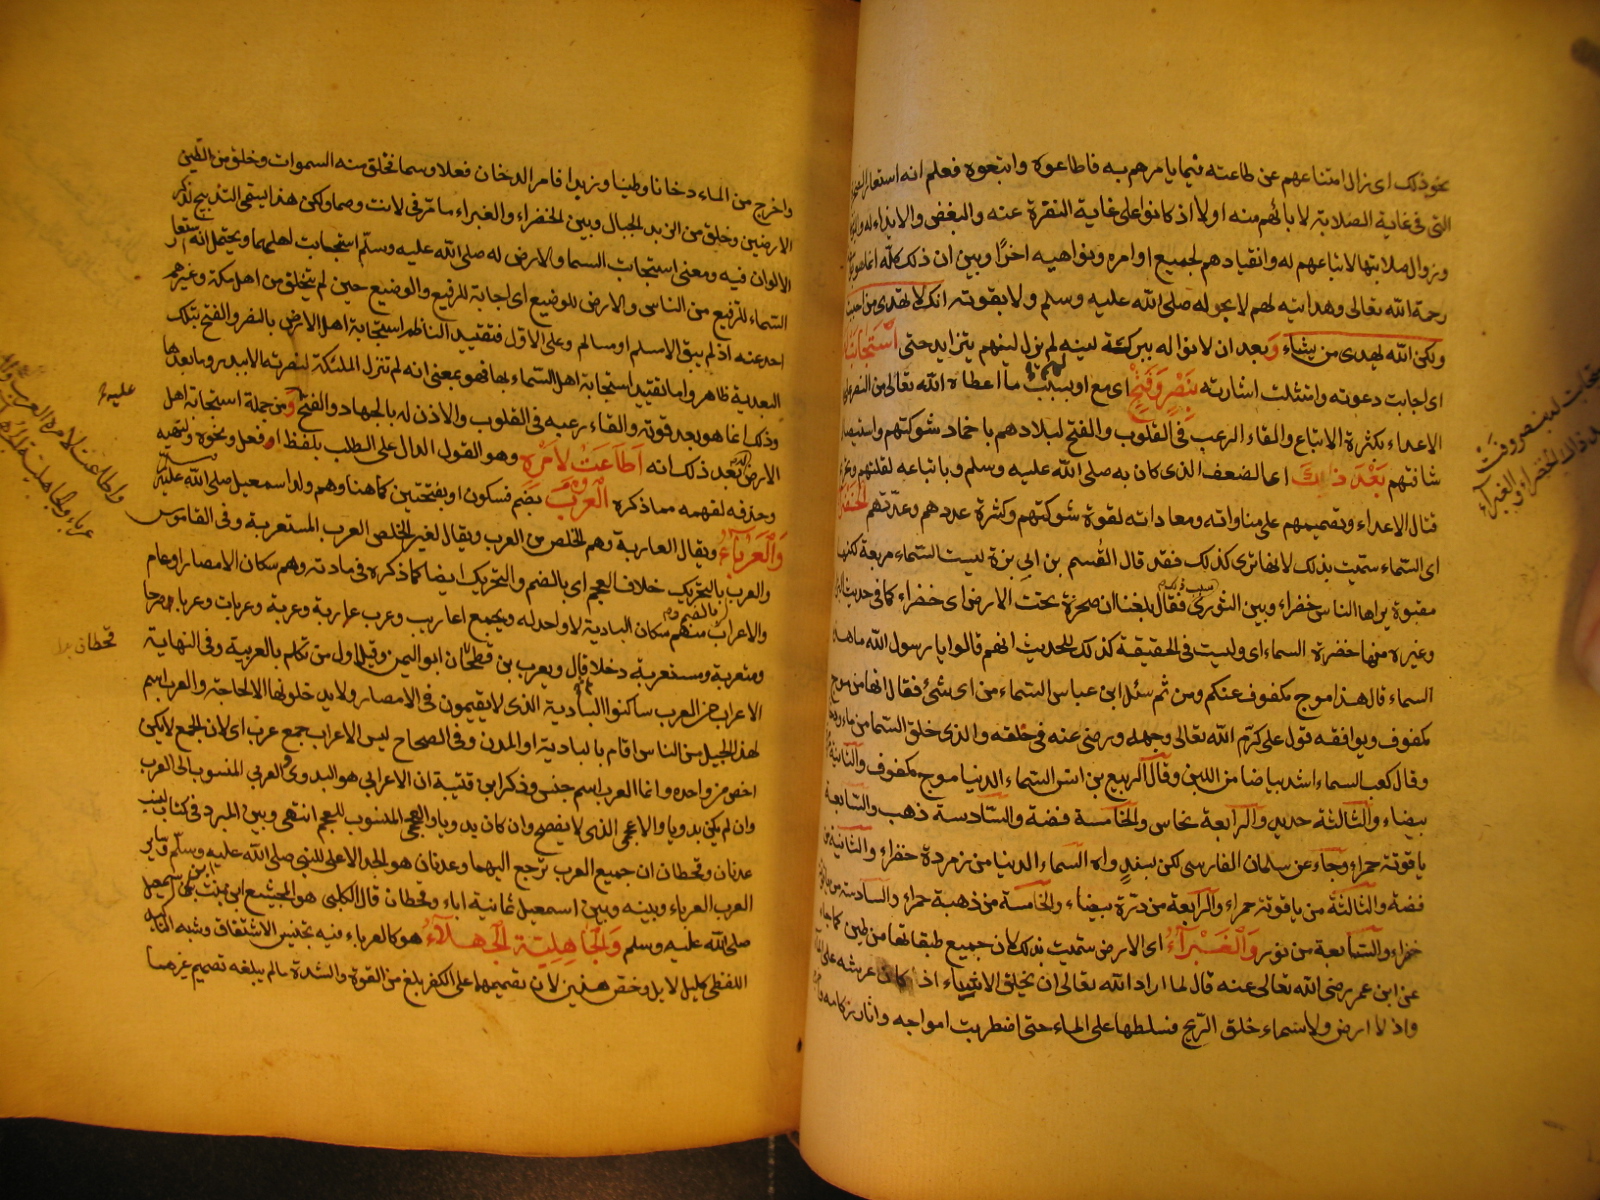 نحو ذلك اى زال امتناعهم عن طاعته فيما يامرهم به فاطاعوه واتبعوه فعلم انه استعار
التى فى غاية الصلابة لابائهم منه اولا اذ كانوا على غاية النفرة عنه والبغض والايذاء له
وزوال صلابتها لاتباعهم له وانقيادهم لجميع اوامره ونواهيه اخرًا وبين ان ذلك كله انما هو
رحمة الله تعالى وهدايته لهم لا بحوله صلى الله عليه وسلم ولا بقوته انك لا تهدى من احببت
ولكن الله يهدى من يشاء وبعد ان لانوا له ببركة لينه لم يزل لينهم يتزايد حتى استجابت
اى اجابت دعوته وامتثلت اشارته بنصر وفتح اى مع او بسبب ما اعطاه الله تعالى من النصر على
الاعداء بكثرة الاتباع والقاء الرعب فى القلوب والفتح لبلادهم باخماد شوكتهم واستيصال
شافتهم بعد ذلك اى الضعف الذى كان به صلى الله عليه وسلم وباتباعه لقلتهم
قتال الاعداء وتصميمهم على مناواته ومعاداته لقوة شوكتهم وكثرة عددهم وعدتهم الخضراء
اى السماء سميت بذلك لانها ترى كذلك فقد قال القسم بن ابى بزة ليست السماء مربعة لكنها
مقبوة يراها الناس خضراء وبين الثورى فقال بلغنا ان صخرة تحت الارض اى خضراء كما فى حديث
وغيره منها خضرة السماء اى وليست فى الحقيقة كذلك لحديث انهم قالوا يا رسول الله ما هذه
السماء قال هذا موج مكفوف عنكم ومن ثم سئل ابن عباس السماء من اى شئ فقال انها من موج
مكفوف ويوافقه قول على كرّم الله تعالى وجهه ورضى عنه فى خلقه والذى خلق السما من ماء
وقال كعب السماء اشد بياضا من اللبن وقال الربيع بن انس السماء الدنيا موج مكفوف والثانية
بيضاء والثالثة حديد والرابعة نحاس والخامسة فضة والسادسة ذهب والسابعة
ياقوتة حمراء وجاء عن سلمان الفارسى لكن بسند واه السماء الدنيا من زمردة خضراء والثانية من
فضة والثالثة من ياقوتة حمراء والرابعة من درّة بيضاء والخامسة من ذهبة حمراء والسادسة من
خضراء والسابعة من نور والغبراء اى الارض سميت بذلك لان جميع طبقاتها من طين كما جاء
عن ابن عمر رضى الله تعالى عنه قال لما اراد الله تعالى ان يخلق الاشياء اذ كان عرشه على الماء
واذ لا ارض ولا سماء خلق الريح فسلطها على الماء حتى اضطربت امواجه واثار ركامه
استجابت له بنصر وفتح
بعد ذلك الخضراء والغبراء
واخرج من الماء دخانا وطينا وزبدا فامر الدخان فعلا وسما فخلق منه السموات وخلق من الطين
الارضين وخلق من الزبد الجبال وبين الخضراء والغبراء ما مر فى لانت وصما ولكن هذا يسمى التدبيج لذكر
الالوان فيه ومعنى استجابت السما والارض له صلى الله عليه وسلّم استجابت اهلهما ويحتمل انه استعار
السماء للرفيع من الناس والارض للوضيع اى اجابة للرفيع والوضيع حين لم يتخلق من اهل مكة وغيرهم
احد عنه اذ لم يبق الا مسلم او مسالم وعلى الاول فتقييد الناظم استجابة اهل الارض بالنصر والفتح بتلك
البعدية ظاهر واما تقييد استجابة اهل السماء بها فهو بمعنى انه لم تنزل الملئكة لنصرته الا ببدر وما بعدها
وذلك انما هو بعد قوته والقاء رعبه فى القلوب والاذن له بالجهاد والفتح ومن جملة استجابة اهل
الارض بعد ذلك انه اطاعت لامره وهو القول الدال على الطلب بلفظ افعل ونحوه ولتهيه
وحذفه لفهمه مما ذكره العرب بضم فسكون او بفتحتين كما هنا وهم ولد اسمعيل صلى الله عليه وسلم
والعرباء ويقال العاربة وهم الخلص من العرب ويقال لغير الخلص العرب المستعربة وفى القاموس
والعرب بالتحريك خلاف العجم اى بالضم والتحريك ايضا كما ذكره فى مادته وهم سكان الامصار او عام
والاعراب منهم سكان البادية لا واحد له ويجمع اعاريب وعرب عاربة وعربة وعربات وعرباء صرحا
ومتعربة ومستعربة دخلا قال ويعرب بن قحطان ابو اليمن وقيل اول من تكلم بالعربية وفى النهاية
الاعراب من العرب ساكنوا البادية الذى لا يقيمون فى الامصار ولا يدخلونها الا لحاجة والعرب اسم
لهذا الجيل من الناس اقام بالبادية او المدن وفى الصحاح ليس الاعراب جمع عرب اى لان الجمع لا يكون
اخص من واحده وانما العرب اسم جنس وذكر ابن قتيبة ان الاعرابى هو البدوى والعربى المنسوب الى العرب
وان لم يكن بدويا والاعجمى الذى لا يفصح وان كان بدويا والعجمى المنسوب للعجم انتهى وبين المبرد فى كتاب نسب
عدنان وقحطان ان جميع العرب ترجع اليهما وعدنان هو الجد الاعلى للنبى صلى الله عليه وسلّم وساير
العرب العرباء وبينه وبين اسمعيل ثمانية اباء وقحطان قال الكلبى هو الهميسع ابن نبت بن اسمعيل
صلى الله عليه وسلم والجاهلية الجهلاء هو كالعرباء فيه تجنيس الاشتقاق وشبه التاكيد
اللفظى كليل لايل وخص هذين لان تصميمهما على الكفر بلغ من القوة والشدة مالم يبلغه تصميم غيرهما
عليه
واطاعت لامره العرب وال
عرباء والجاهلية الجهلاء
قحطان